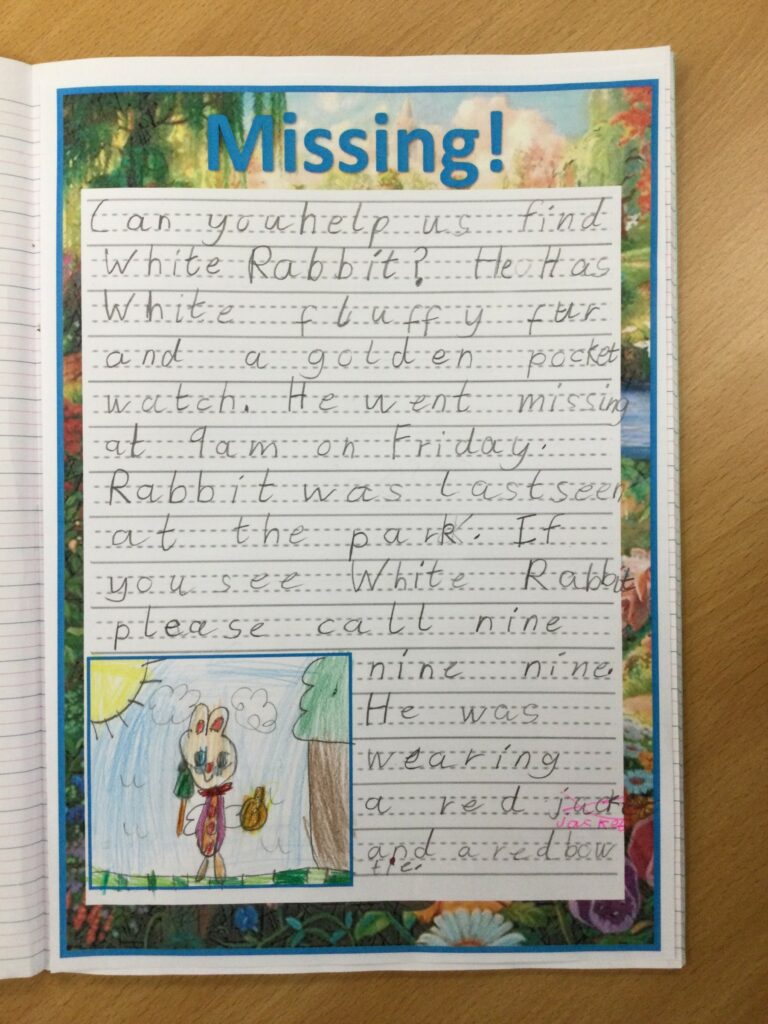 Missing!
Can you help us find
White Rabbit? He Has
White fluffy fur
and a golden pocket
watch. He went missing
at 9am on Friday.
Rabbit was last seen
at the park. If
you see White Rabbit
please call nine
nine nine.
He was
wearing
a red jucke
Jacket
and a red bow
tie.